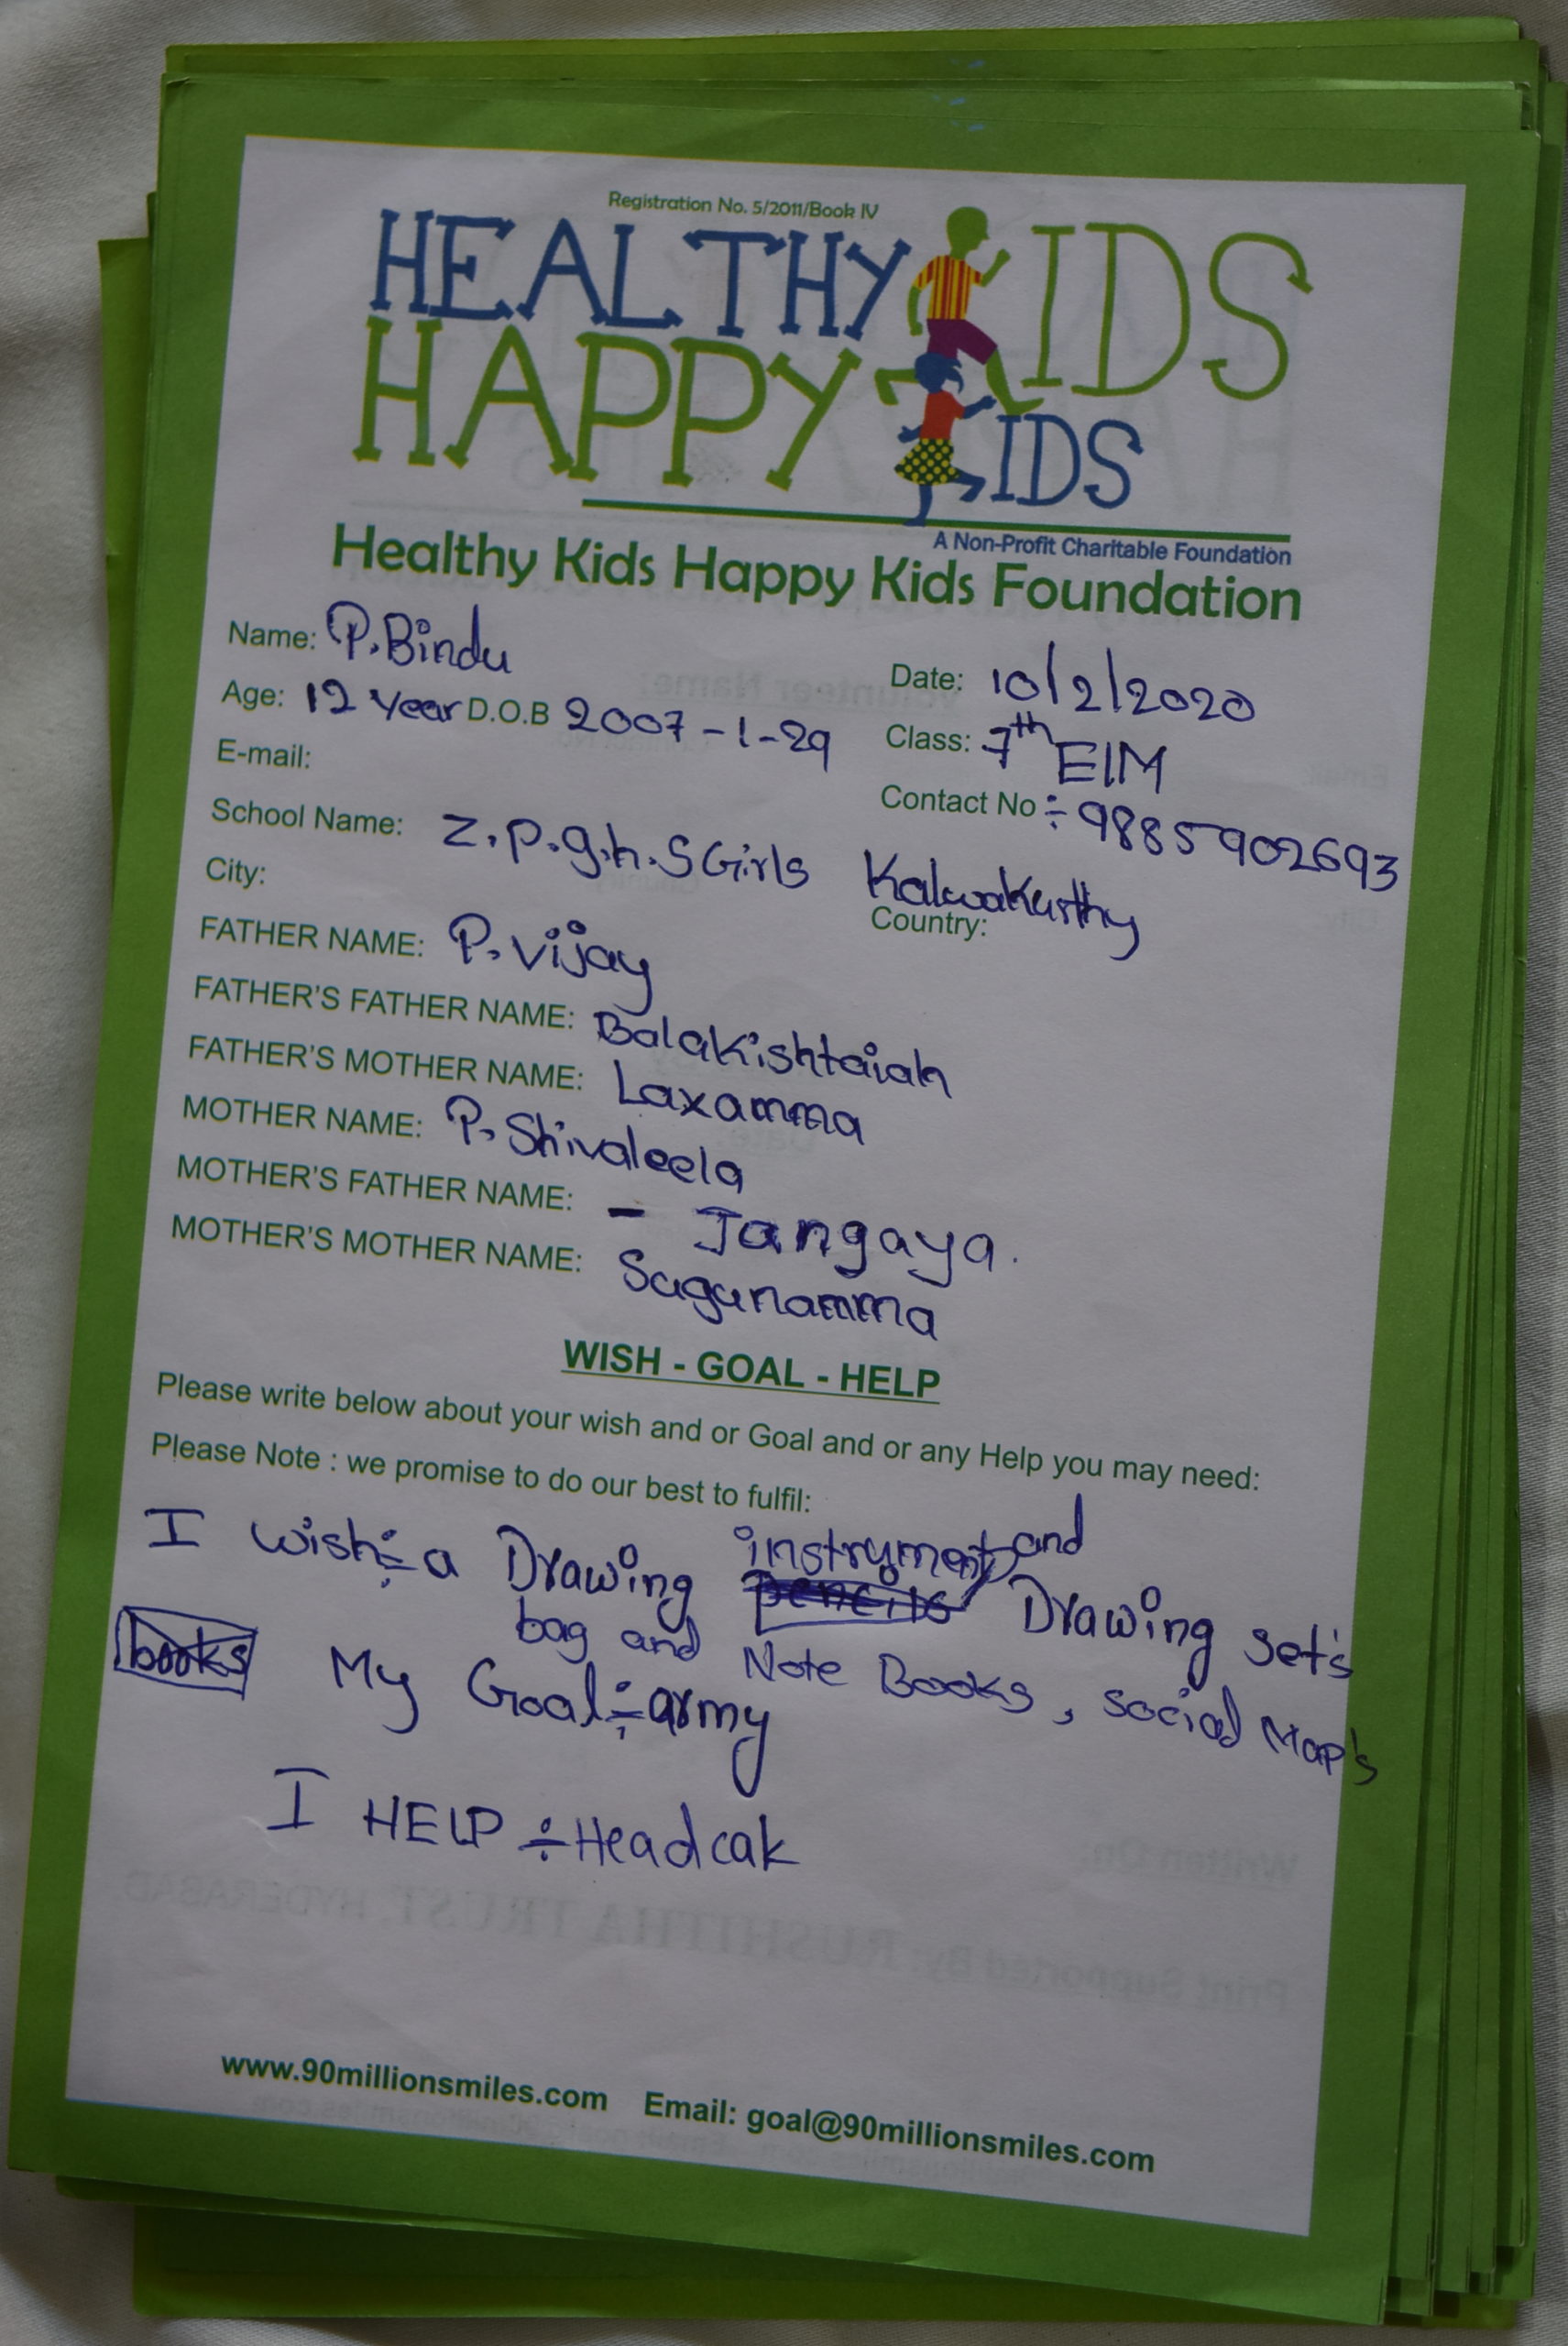 Registration No. 5/2011/Book IV
HEALTHY KIDS
HAPPY KIDS
A Non-Profit Charitable Foundation
Healthy Kids Happy Kids Foundation
Name: P.Bindu
Date: 10/2/2020
Age: 12 Year D.O.B 2007-1-29
Class: 7th E/M
E-mail:
Contact No ÷ 9885902693
School Name: Z.P.g.h.S Girls Kalwakurthy
City:
Country:
FATHER NAME: P. Vijay
FATHER'S FATHER NAME: Balakishtaiah
FATHER'S MOTHER NAME: Laxamma
MOTHER NAME: P. Shivaleela
MOTHER'S FATHER NAME: - Jangaya.
MOTHER'S MOTHER NAME: Sagunamma
WISH - GOAL - HELP
Please write below about your wish and or Goal and or any Help you may need:
Please Note : we promise to do our best to fulfil:
I wish ÷ a Drawing pencils instryment and Drawing set's
books bag and Note Books, social Map's
My Goal ÷ army
I HELP ÷ Headcak
www.90millionsmiles.com Email: goal@90millionsmiles.com